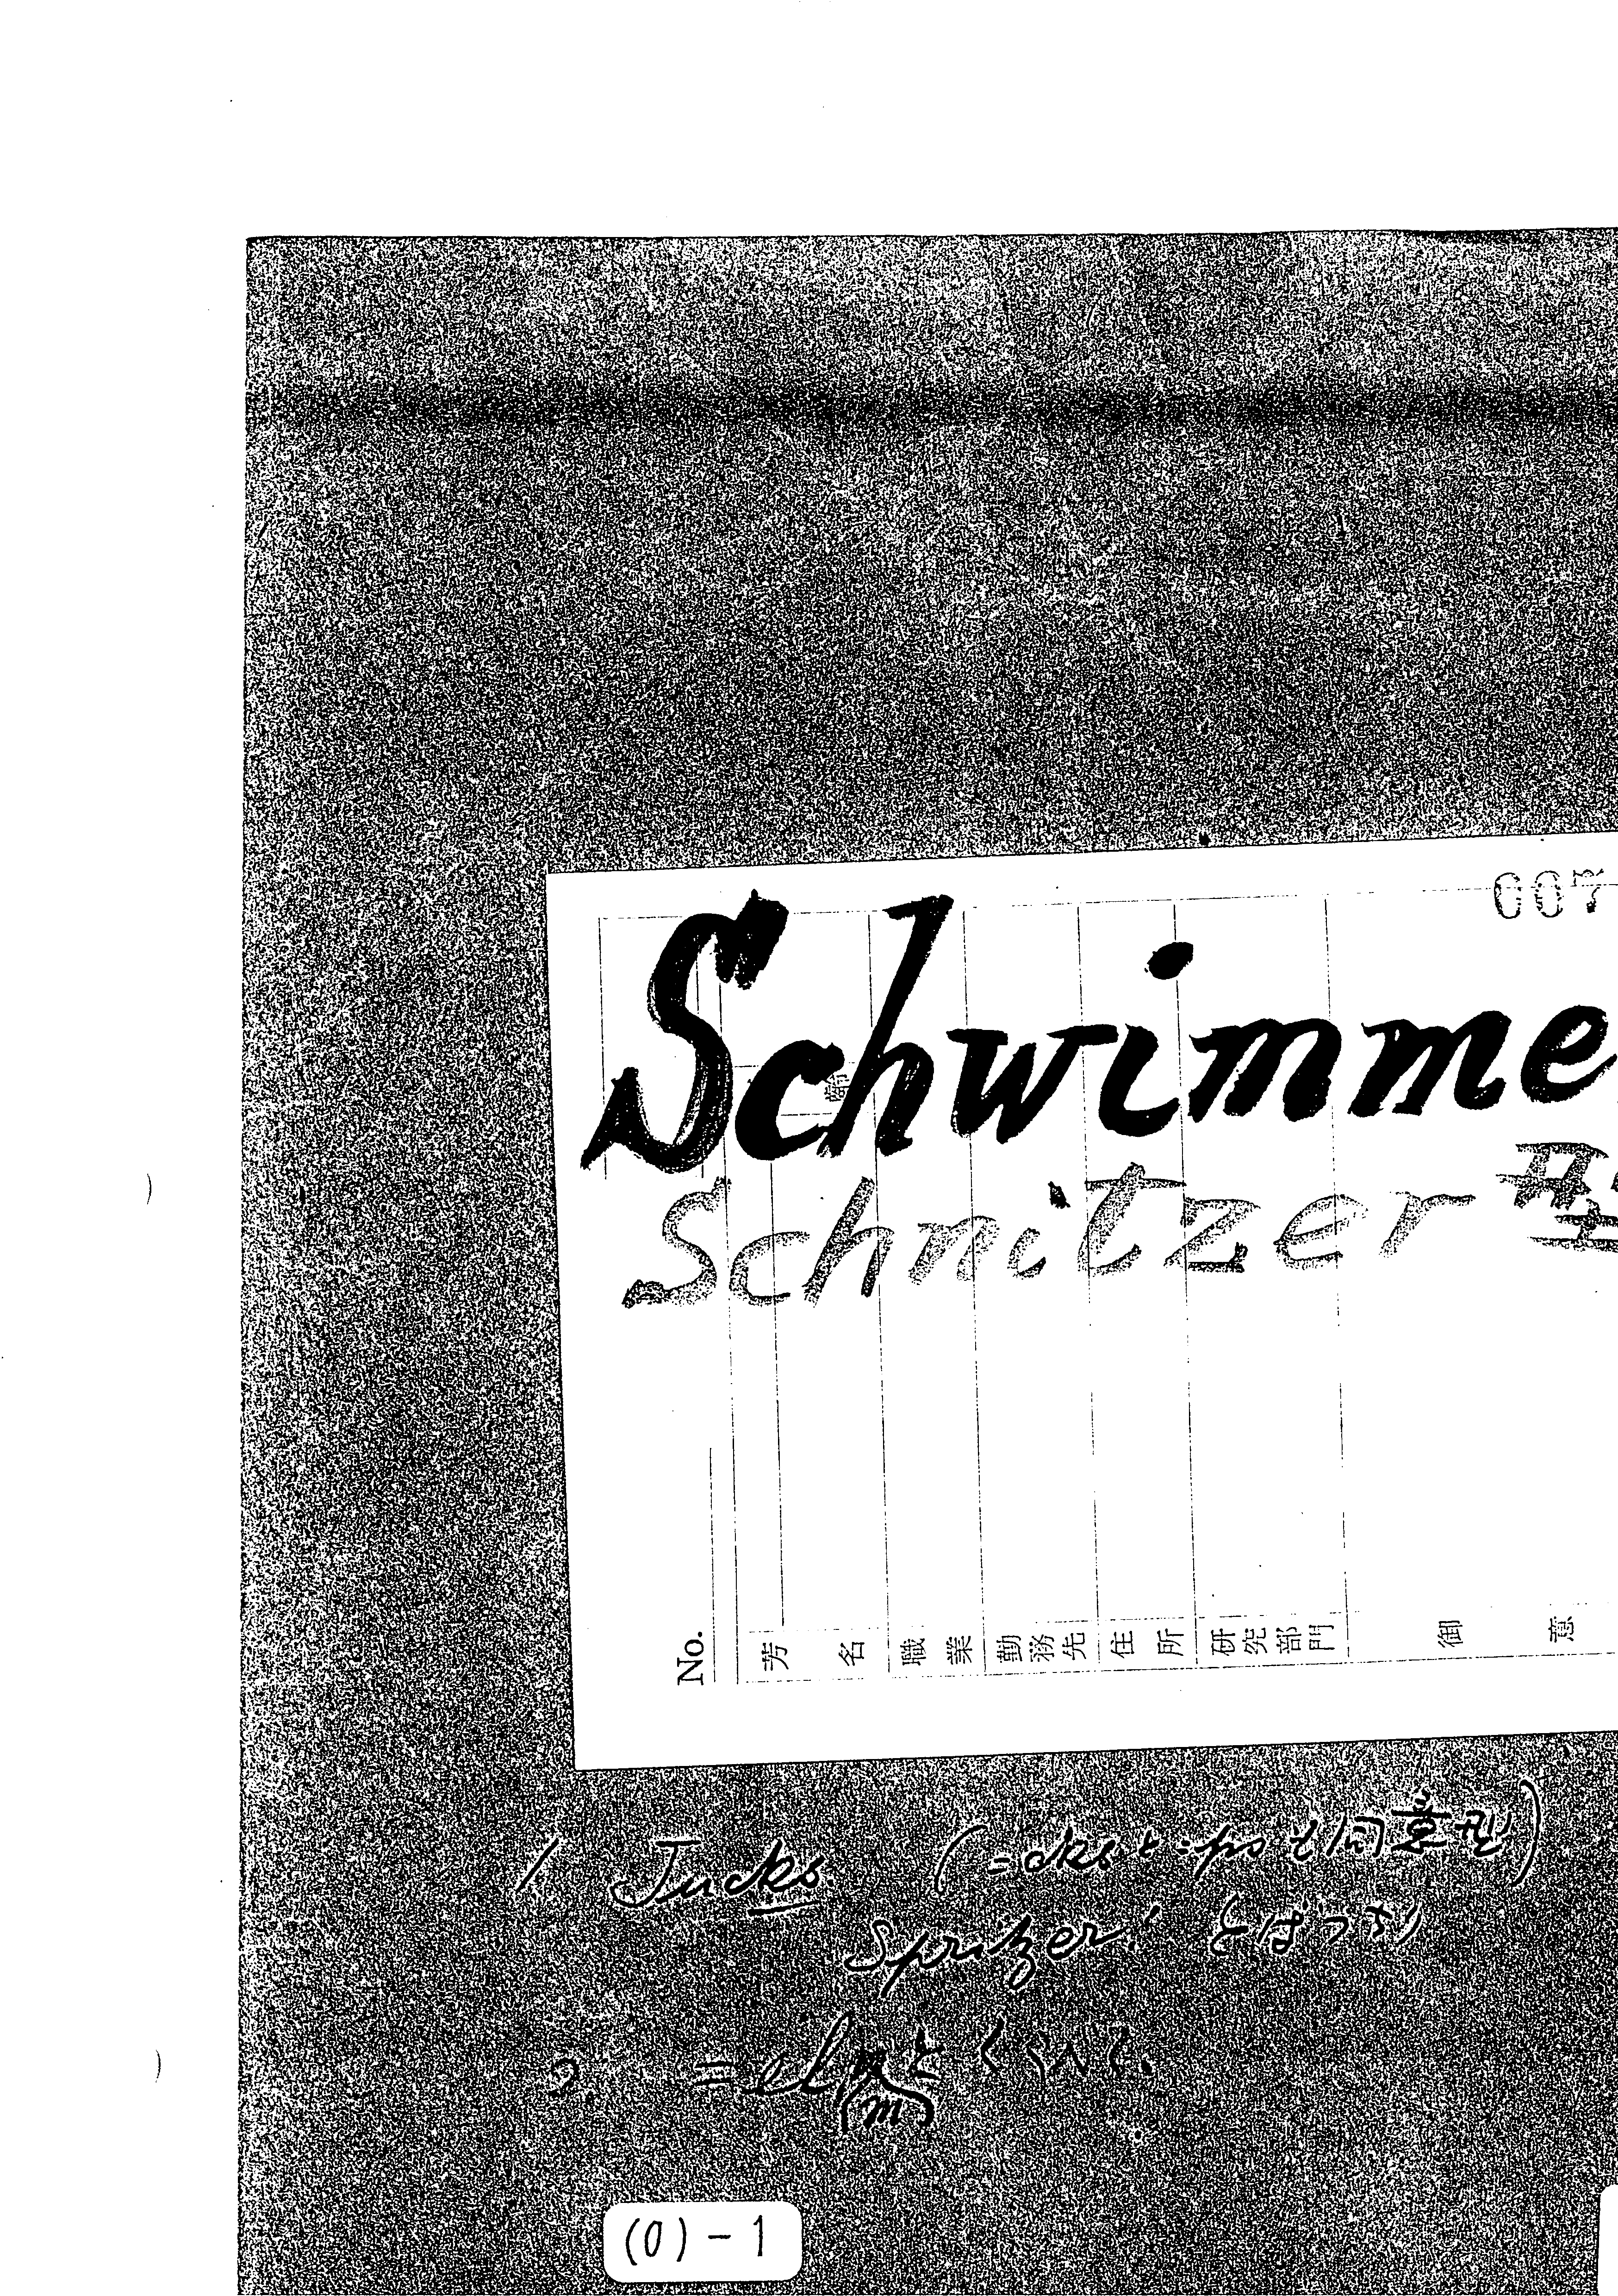 007
Schwimme
Schnitzer 型
No.
芳名
職業
勤務先
住所
研究部門
御意
1 Jucks. (=cksと=psと同意型)
Spritzer! とばっちり
2. =eln
(m)
(0)-1